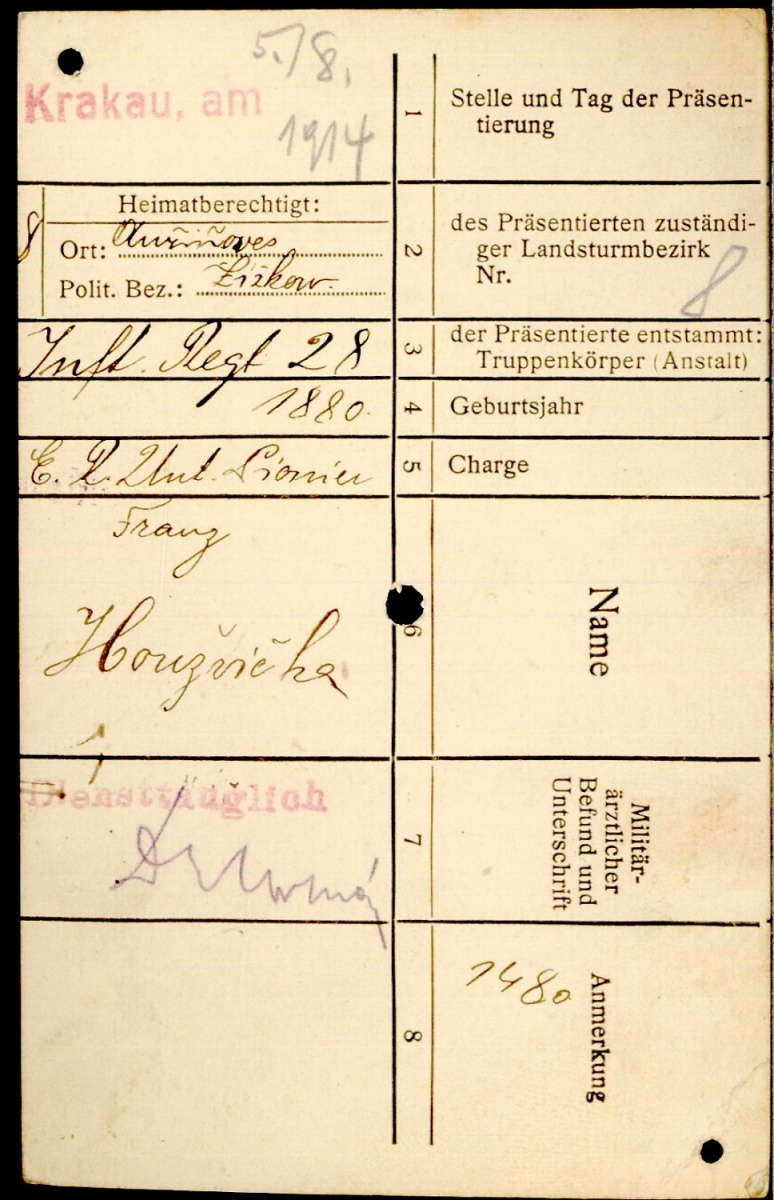 5./8.
Krakau, am
1914
1
Stelle und Tag der Präsen-
tierung
8
Heimatberechtigt:
Ort: Auřiňoves
Polit. Bez.: Žižkow.
2
des Präsentierten zuständi-
ger Landsturmbezirk
Nr. 8
Inft. Regt 28
3
der Präsentierte entstammt:
Truppenkörper (Anstalt)
1880.
4
Geburtsjahr
E. R. Unt. Pionier
5
Charge
Franz
Houžvička
6
Name
Diensttauglich
7
Militär-
ärztlicher
Befund und
Unterschrift
8
Anmerkung
1480